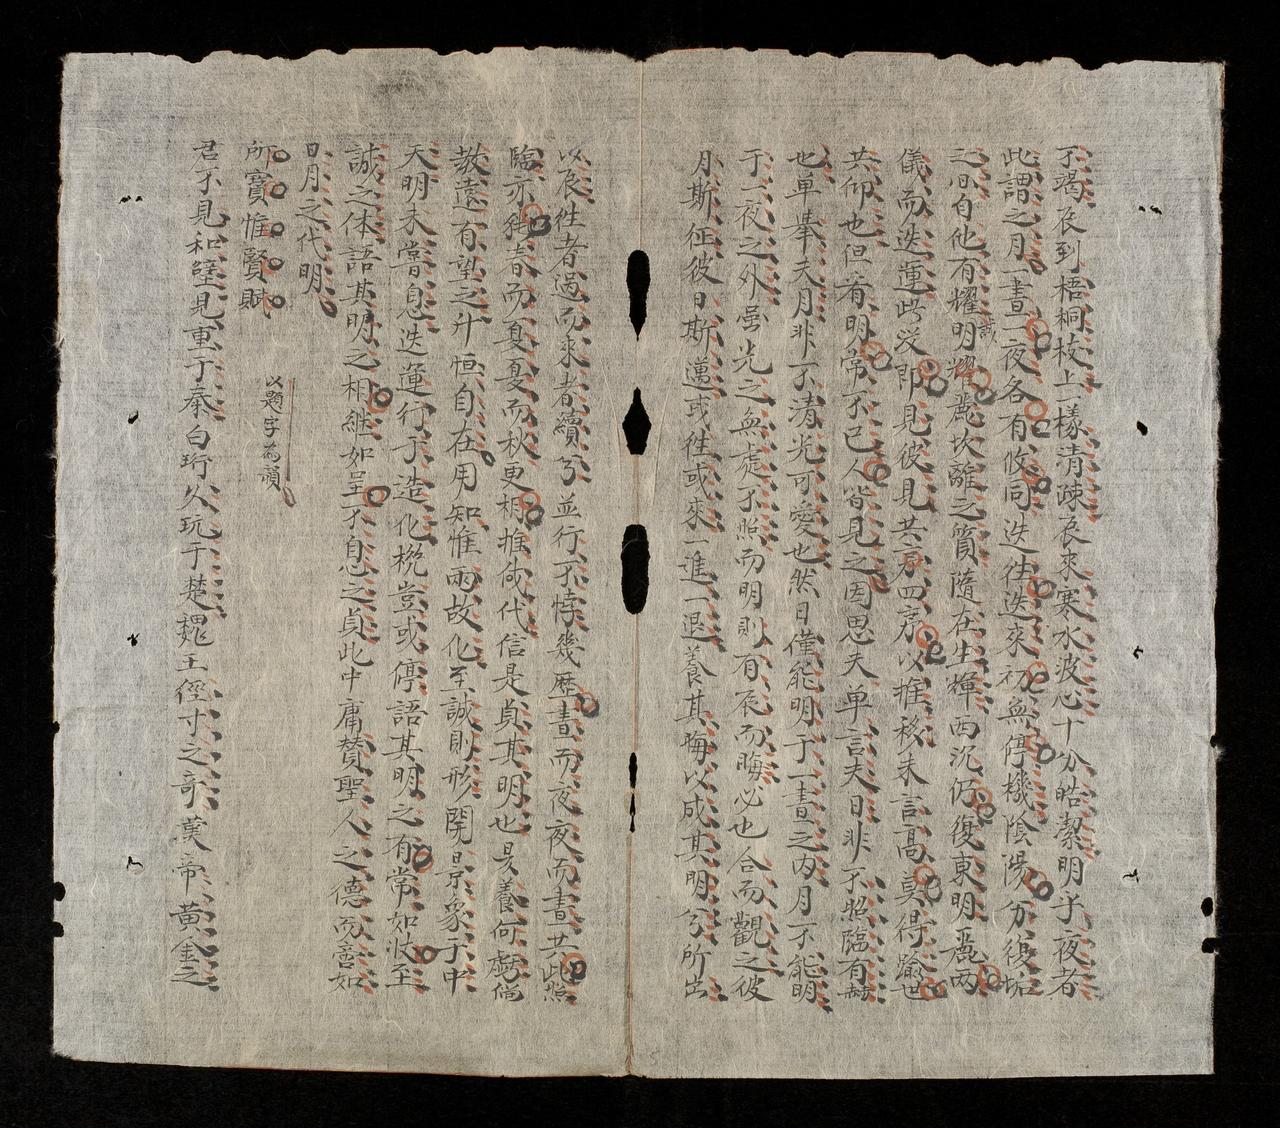 不竭辰到梧桐枝上一樣清疎辰來寒水波心十分皓潔明乎夜者
此謂之月一晝一夜各有攸同迭往迭來初無停機陰陽分復姤
之間自他有耀明耀麗坎離之質隨在生輝西沉仍復東明麗兩
誠
儀而迭運此沒即見彼見共方四旁以推移未言高莫得踰也
共仰也但看明常不已人皆見之因思夫单言夫日非不照臨有赫
也单舉夫月非不清光可愛也然日僅能明于一晝之內月不能明
于一夜之外虽光之無處不照而明則有辰而晦必也合而觀之彼
月斯征彼日斯邁或往或來一進一退養其晦以成其明兮所出
以辰往者過而來者續兮並行不悖幾歷晝而夜夜而晝共此照
臨亦純春而夏夏而秋更相推代代信是貞其明也是養何虧倘
教遠有望之升恒自在用知惟兩故化至誠則形開景象于中
天明未嘗息迭運行于造化機豈或停語其明之有常如此至
誠之体語其明之相継如呈不息之貞此中庸赞聖人之德而喜如
日月之代明
所寶惟賢賦
以題字為韻
君不見和璧見重于秦白珩久玩于楚魏王徑寸之奇漢帝黃金之